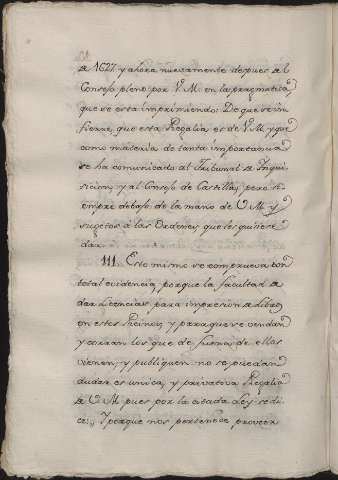 de 1627. y ahora nuevamente despues del
Consejo pleno por V.M. en la pragmatica
que se esta imprimiendo: De que se in-
fiere, que esta Regalia es de V.M. y que
como materia de tanta importancia
se ha comunicado al Tribunal de Inqui-
sicion, y al Consejo de Castilla, pero si-
empre debajo de la mano de V.M. y
sugetos à las Ordenes, que les quisiere
dar.
111. Esto mismo se comprueva con
total evidencia, porque la facultad de
dar Licencias para impresion de Libros
en estos Reinos, y para que se vendan
y corran los que de fuera de ellos
vienen, y publiquen no se puede
dudar es unica, y privativa Regalia
de V.M. pues por la citada Ley se di-
ce: Y porque nos pertenece proveer